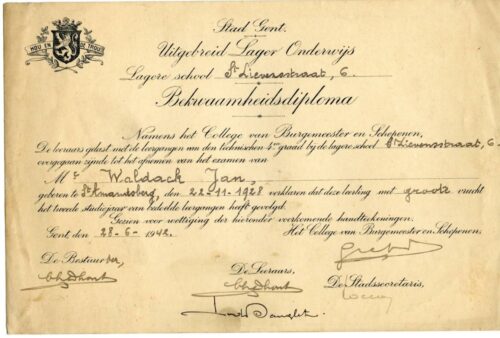 HOU EN TROU
Stad Gent.
Uitgebreid Lager Onderwijs
Lagere school St Lievensstraat, 6.
Bekwaamheidsdiploma
Namens het College van Burgemeester en Schepenen,
De leeraars gelast met de leergangen van den technischen 4en graad bij de lagere school St Lievensstraat, 6
overgegaan zijnde tot het afnemen van het examen van
Mr Waldack Jan,
geboren te St Amandsberg, den 22-11-1928 verklaren dat deze leerling met groote vrucht
het tweede studiejaar van bedoelde leergangen heeft gevolgd.
Gezien voor wettiging der hieronder voorkomende handteekeningen.
Gent, den 28-6-1942. Het College van Burgemeester en Schepenen,
De Bestuurder,
De Leeraars,
De Stadssecretaris,
Ch. D'hont
Ch. D'hont